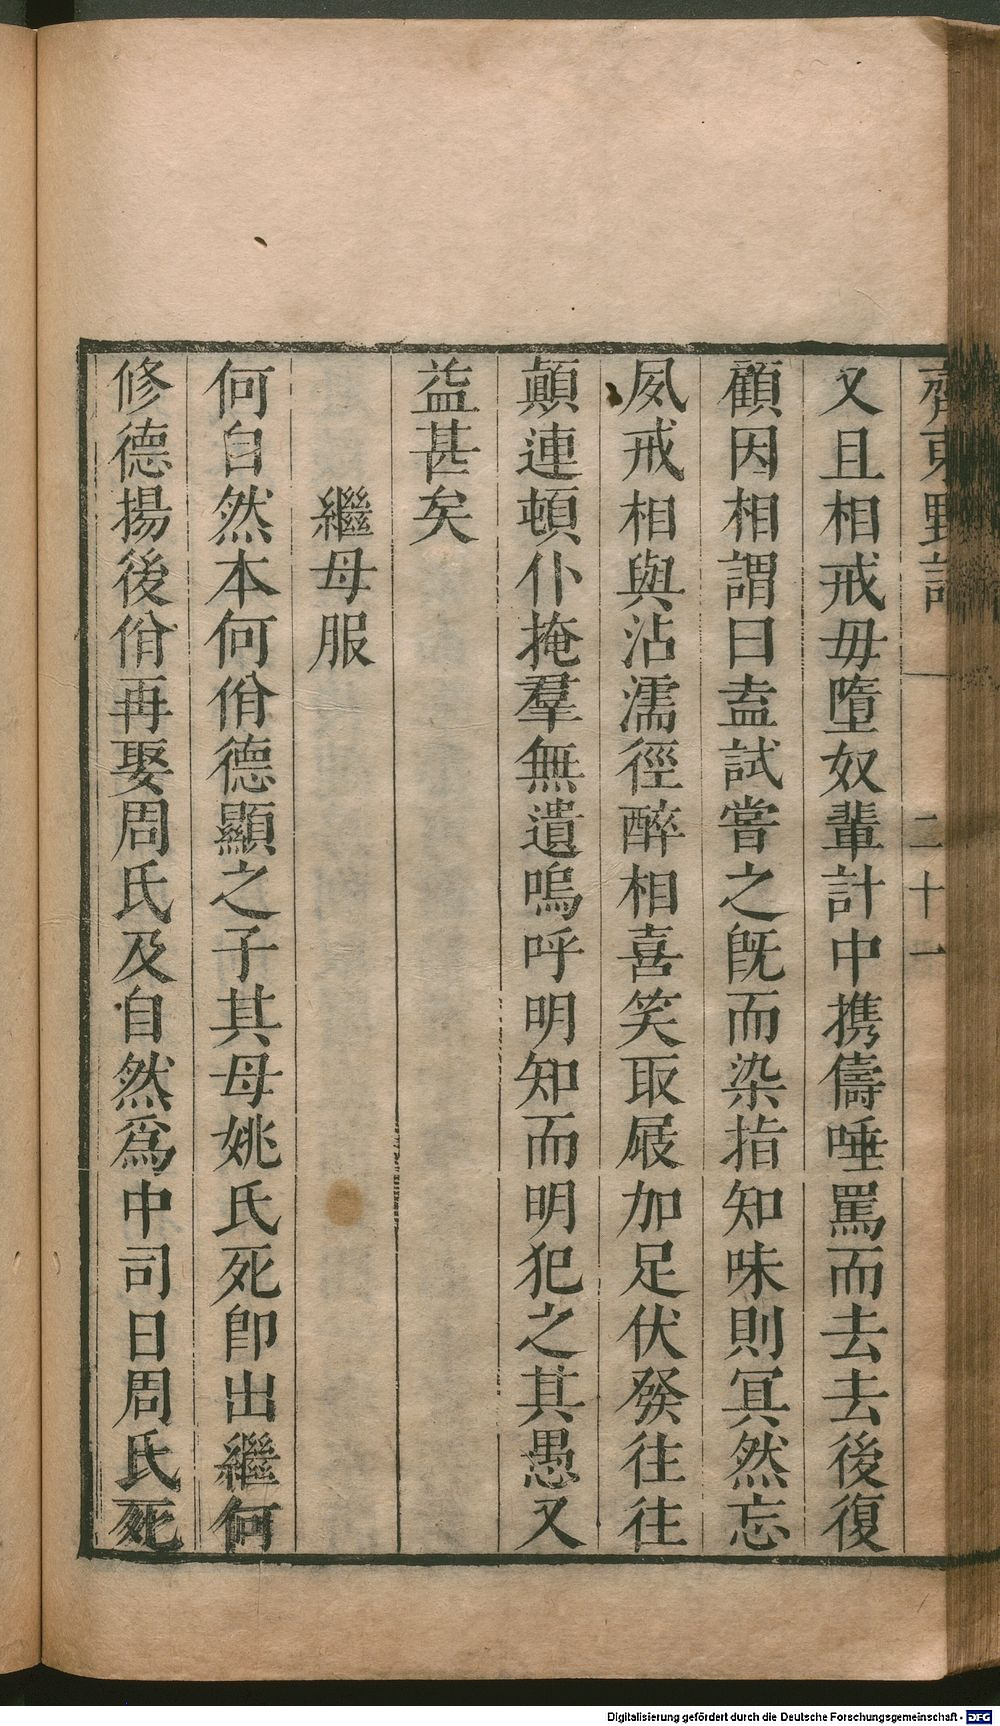 齊東野語
二十一
又且相戒毋墮奴輩計中攜儔唾罵而去去後復
顧因相謂曰盍試嘗之旣而染指知味則冥然忘
夙戒相與沾濡徑醉相喜笑取屐加足伏發往往
顛連頓仆掩羣無遺嗚呼明知而明犯之其愚又
益甚矣
繼母服
何自然本何佾德顯之子其母姚氏死卽出繼何
修德揚後佾再娶周氏及自然爲中司日周氏死
Digitalisierung gefördert durch die Deutsche Forschungsgemeinschaft - DFG